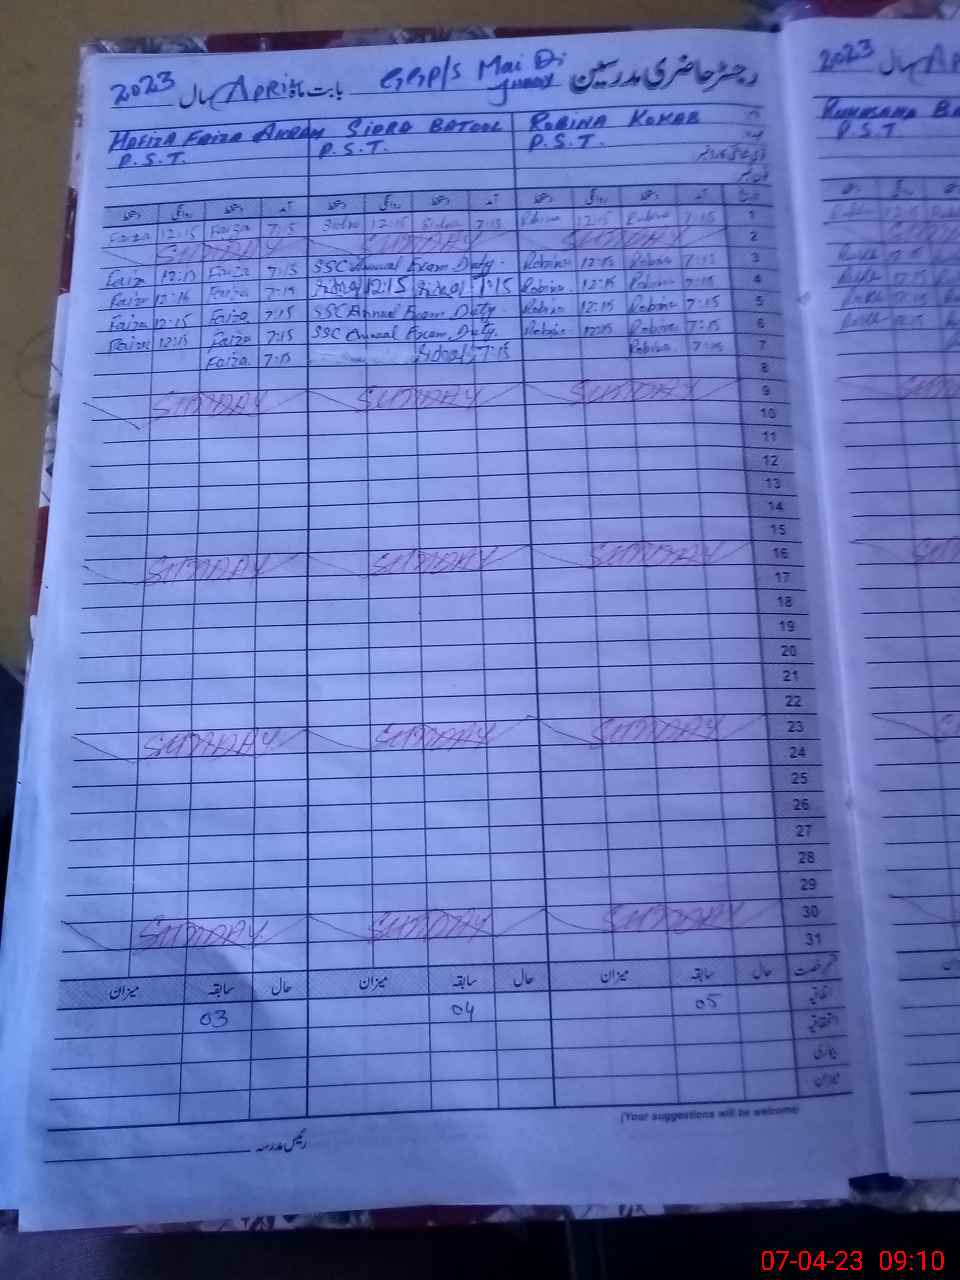 رجسٹر حاضری مدرسین GGP/S Mai Di بابت ماہ April سال 2023
HAFIZA FAIZA AKRAM SIDRA BATOOL ROBINA KOKAB
P.S.T. P.S.T. P.S.T.
Faiza 12:15 Faiza 7:15 Sidra 12:15 Sidra 7:15 Robina 12:15 Robina 7:15 1
SUNDAY SUNDAY SUNDAY 2
Faiza 12:15 Faiza 7:15 SSC Annual Exam Duty. Robina 12:15 Robina 7:15 3
Faiza 12:15 Faiza 7:15 Sidra 12:15 Sidra 7:15 Robina 12:15 Robina 7:15 4
Faiza 12:15 Faiza 7:15 SSC Annual Exam Duty Robina 12:15 Robina 7:15 5
Faiza 12:15 Faiza 7:15 SSC Annual Exam Duty. Robina 12:15 Robina 7:15 6
Faiza 7:15 Sidra 7:15 Robina 7:15 7
8
SUNDAY SUNDAY SUNDAY 9
10
11
12
13
14
15
SUNDAY SUNDAY SUNDAY 16
17
18
19
20
21
22
SUNDAY SUNDAY SUNDAY 23
24
25
26
27
28
29
SUNDAY SUNDAY SUNDAY 30
31
قسم رخصت حال سابقہ میزان حال سابقہ میزان حال سابقہ میزان
اتفاقیہ 05 04 03
بیماری
میزان
(Your suggestions will be welcome)
رئیس مدرسہ
2023 سال
RUKHSANA
P.S.T
07-04-23 09:10